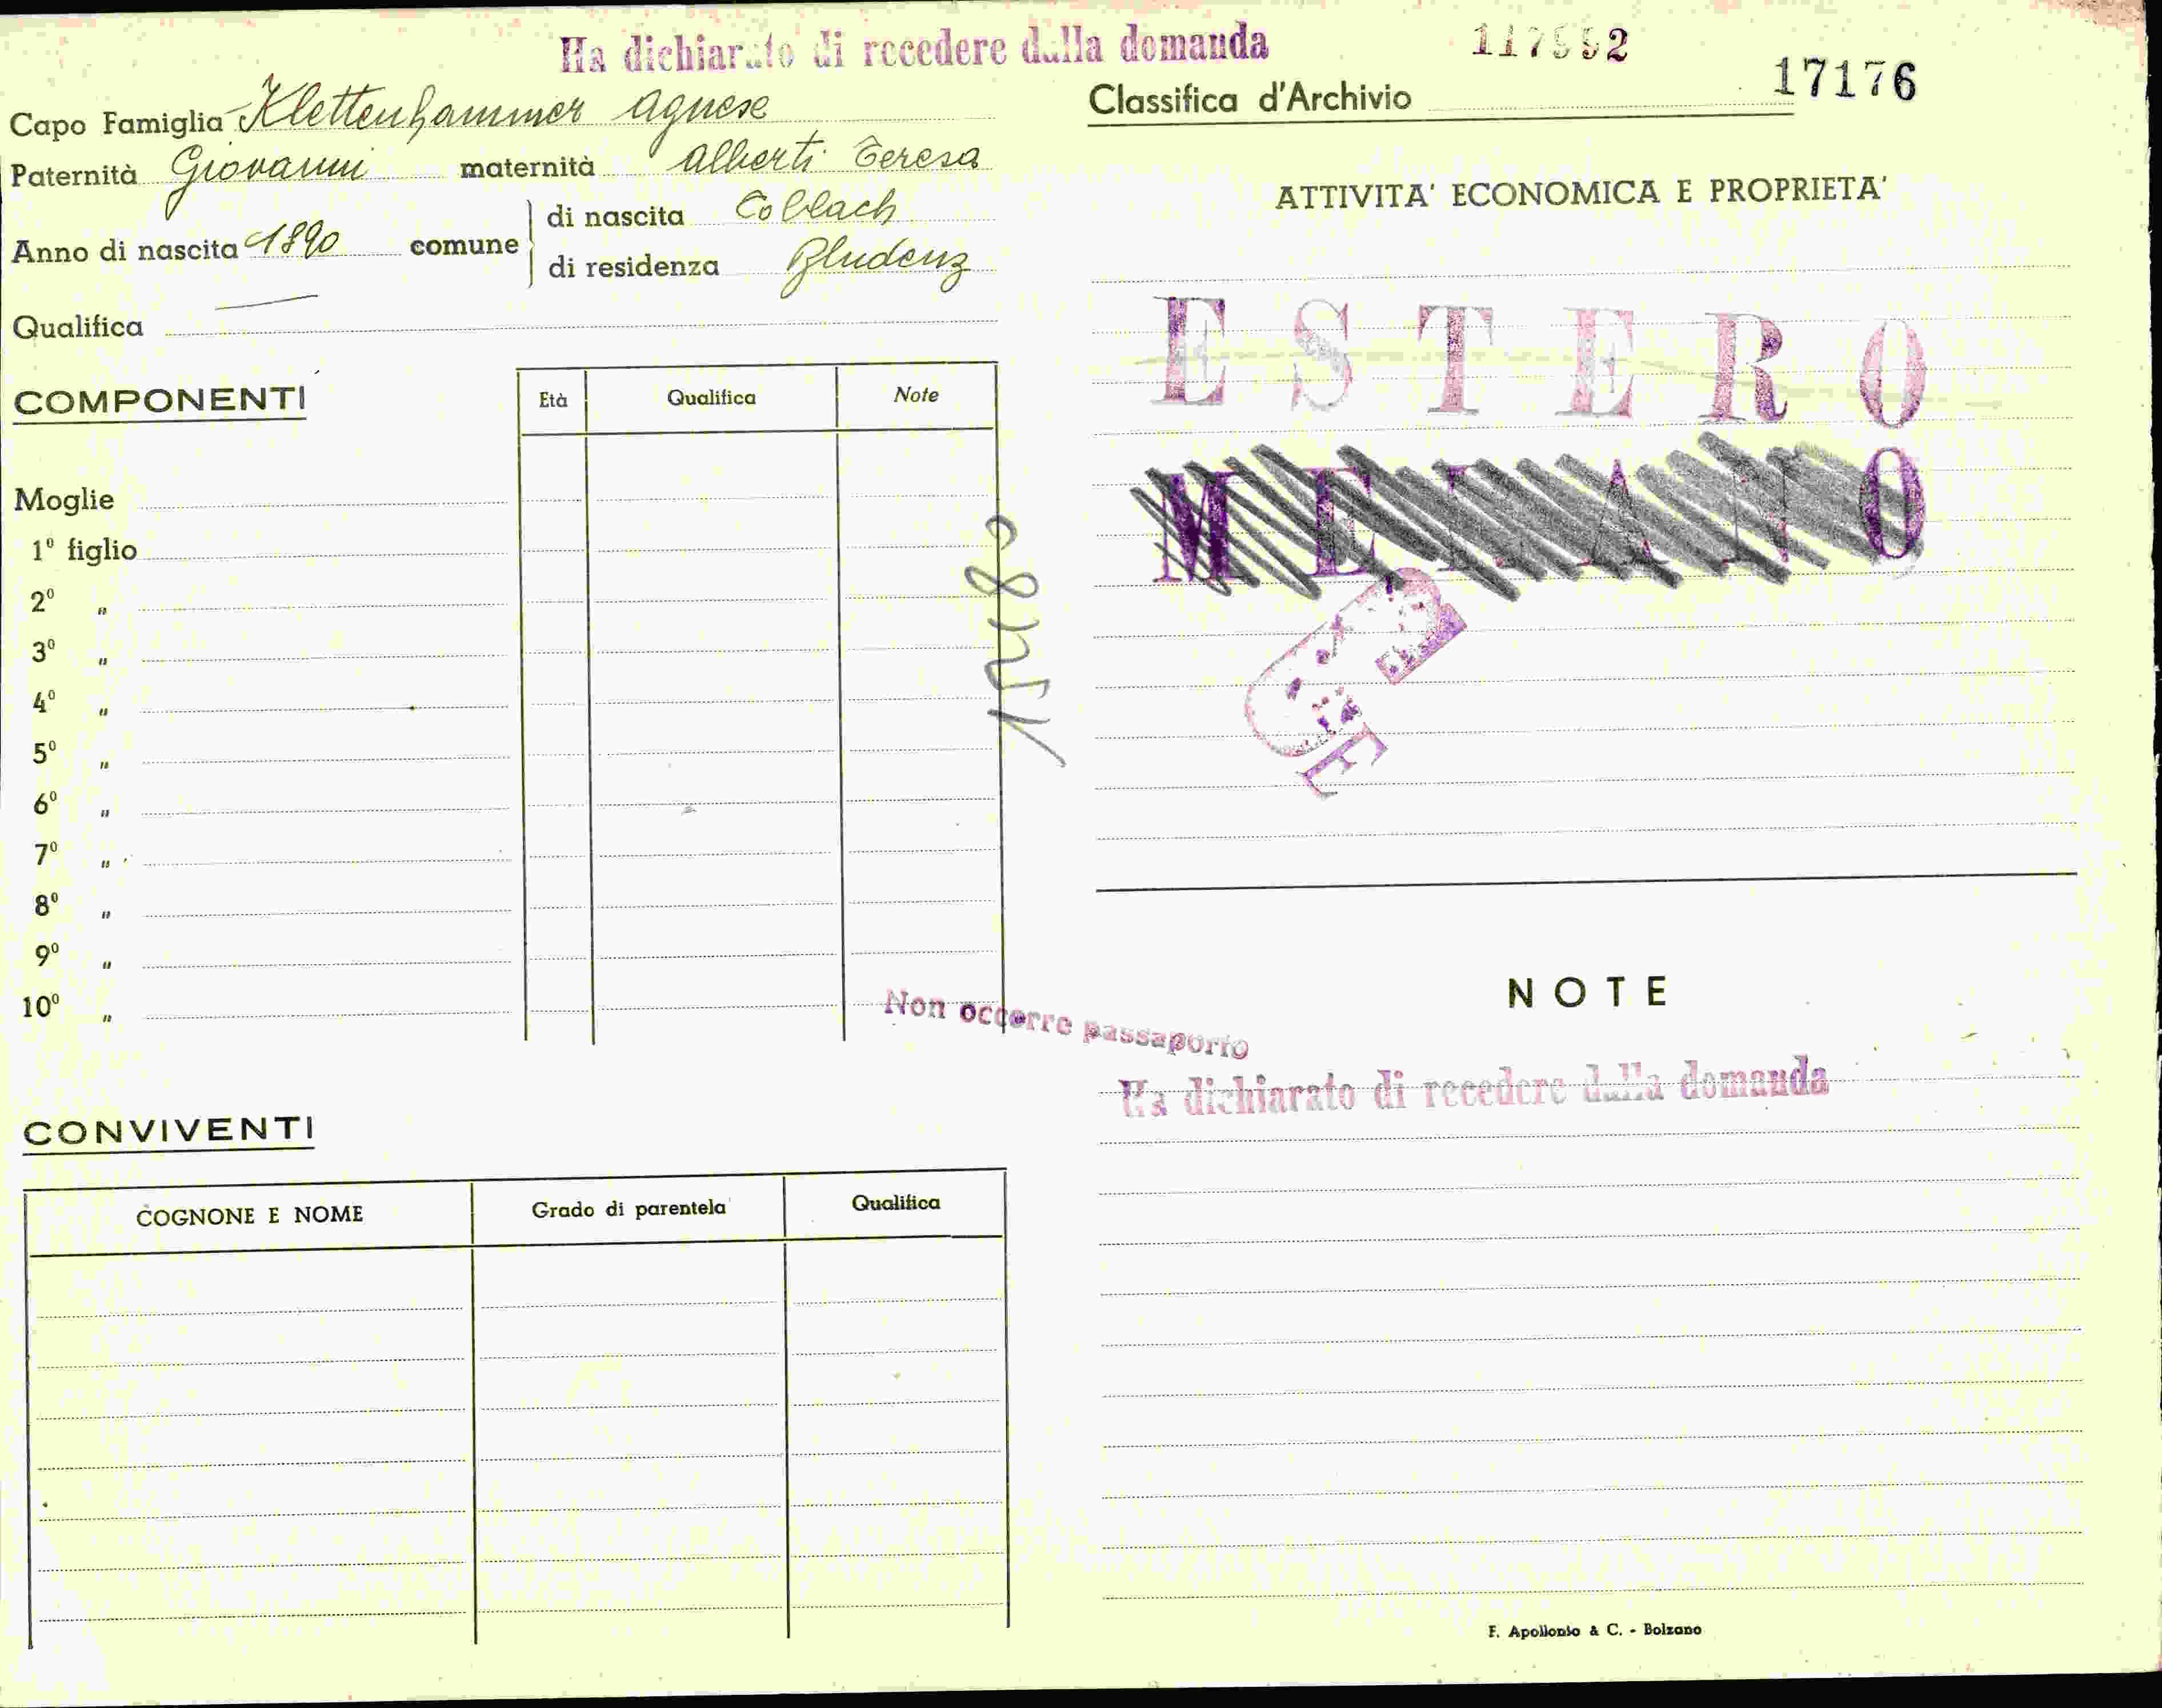 Ha dichiarato di recedere dalla domanda
117992
17176
Capo Famiglia Klettenhammer Agnese
Classifica d'Archivio
Paternità Giovanni maternità Alberti Teresa
Anno di nascita 1890 comune
di nascita Toblach
di residenza Bludenz
Qualifica
COMPONENTI
Età Qualifica Note
Moglie
1º figlio
2º "
3º "
4º "
5º "
6º "
7º "
8º "
9º "
10º "
CONVIVENTI
COGNONE E NOME Grado di parentela Qualifica
ATTIVITA' ECONOMICA E PROPRIETA'
ESTERO
MERANO
Non occorre passaporto
NOTE
Ha dichiarato di recedere dalla domanda
F. Apollonio & C. - Bolzano